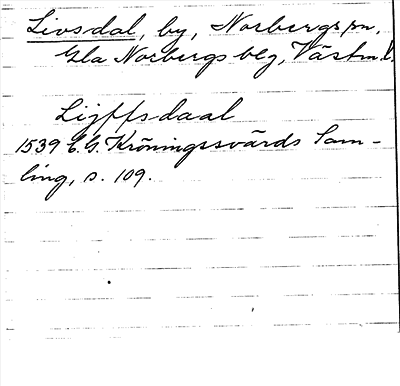 Livsdal, by, Norbergs sn,
Gla Norbergs blg, Västm. l.
Ligffsdaal
1539 C. G. Kröningssvärds Sam-
ling, s. 109.